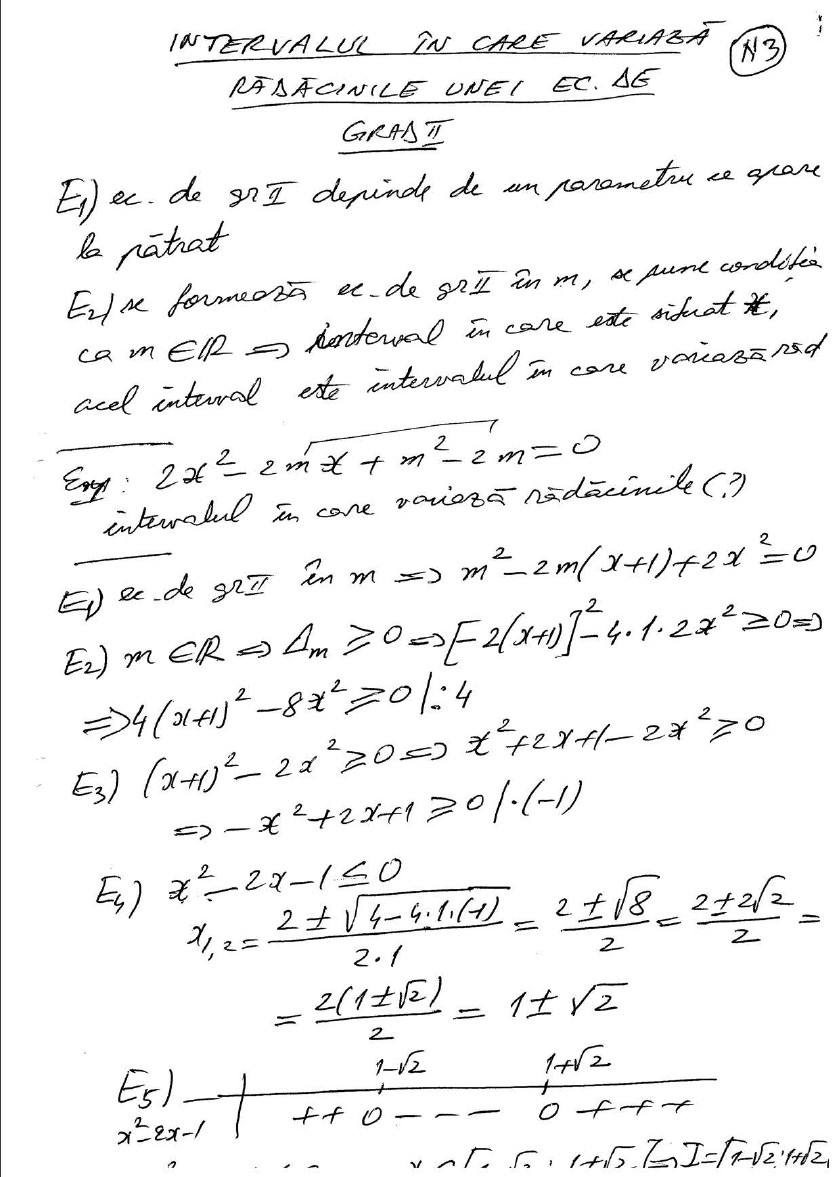 INTERVALUL ÎN CARE VARIAZĂ
N3
RĂDĂCINILE UNEI EC. DE
GRAD II
E1) ec. de gr II depinde de un parametru ce apare
la pătrat
E2) se formează ec. de gr II în m, se pune condiția
ca m ∈ ℝ ⇒ interval în care este situat x,
acel interval este intervalul în care variază răd
Exp: 2x² - 2mx + m² - 2m = 0
intervalul în care variază rădăcinile (?)
E1) ec. de gr II în m ⇒ m² - 2m(x+1) + 2x² = 0
E2) m ∈ ℝ ⇒ Δm ≥ 0 ⇒ [-2(x+1)]² - 4·1·2x² ≥ 0 ⇒
⇒ 4(x+1)² - 8x² ≥ 0 |:4
E3) (x+1)² - 2x² ≥ 0 ⇒ x² + 2x + 1 - 2x² ≥ 0
⇒ -x² + 2x + 1 ≥ 0 |·(-1)
E4) x² - 2x - 1 ≤ 0
x1,2 = (2 ± √(4 - 4·1·(-1)))/(2·1) = (2 ± √8)/2 = (2 ± 2√2)/2 =
= 2(1 ± √2)/2 = 1 ± √2
1-√2 1+√2
E5)
x² - 2x - 1 | + + 0 - - - 0 + + +
1+√2] ⇒ I = [1-√2; 1+√2